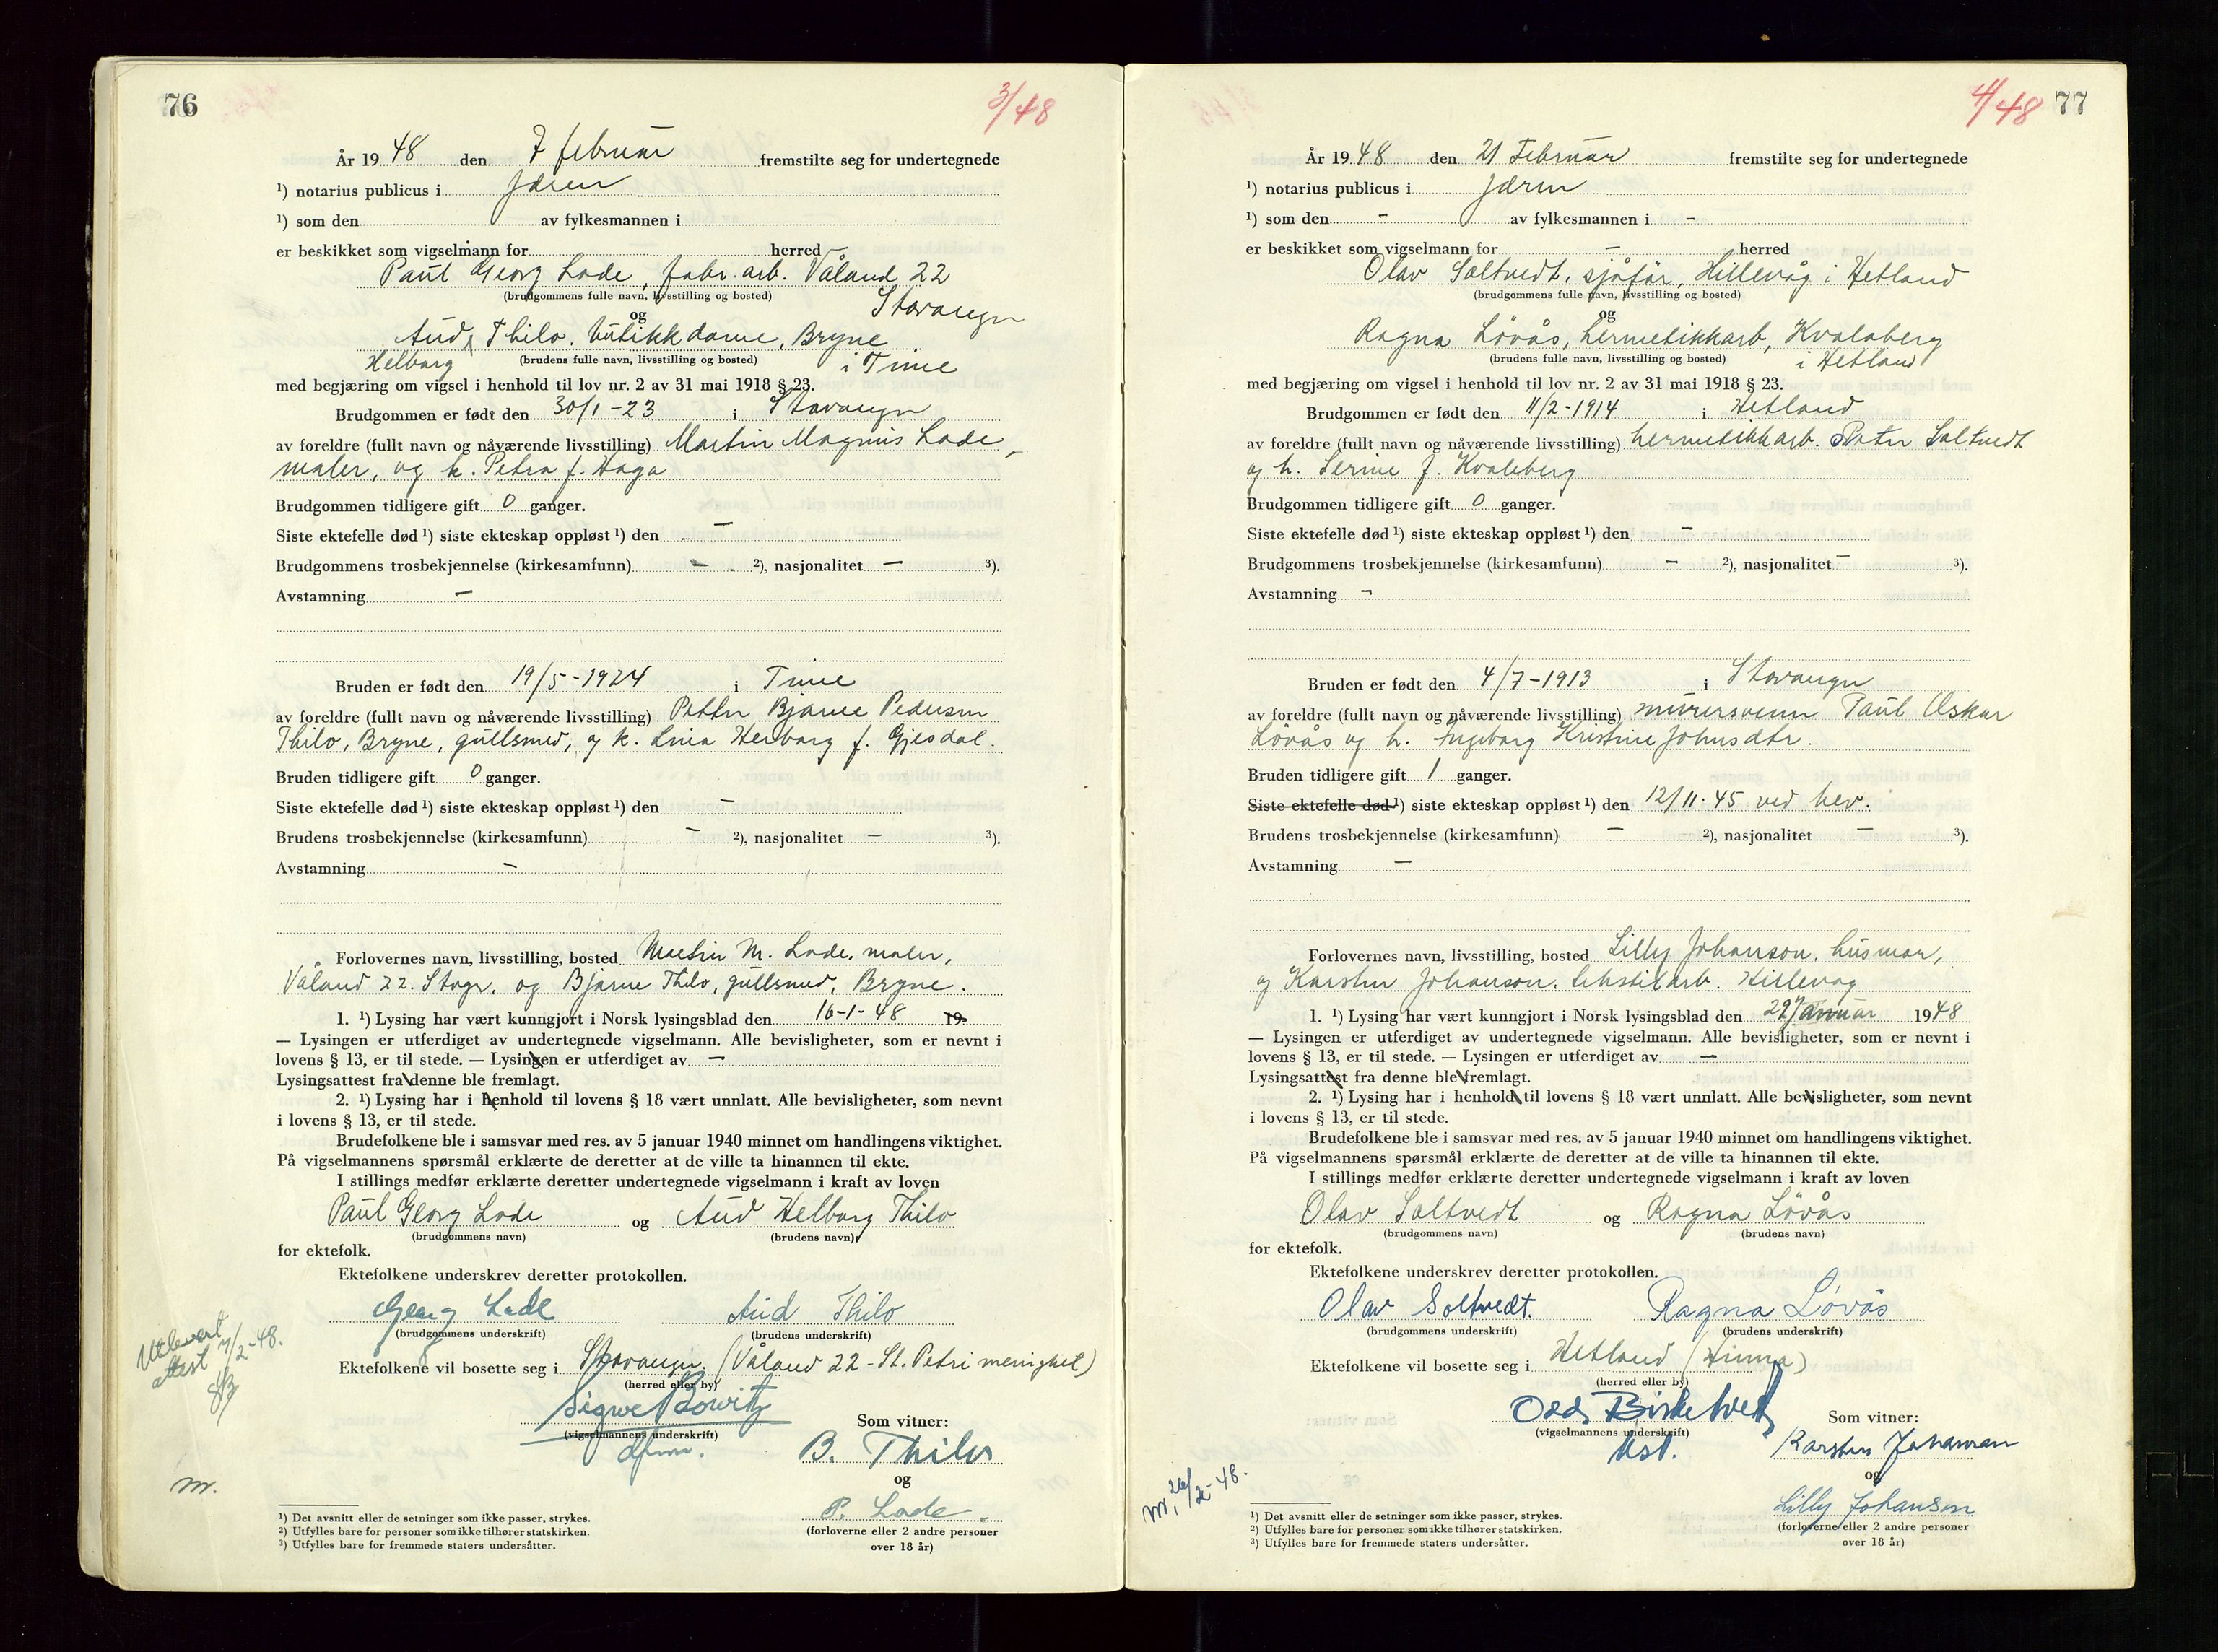 76
3/48
År 1948 den 7 februar fremstilte seg for undertegnede
¹) notarius publicus i Jæren
¹) som den av fylkesmannen i
er beskikket som vigselmann for herred
Paul Georg Lode, fabr.arb. Våland 22
(brudgommens fulle navn, livsstilling og bosted)
Stavanger
og
Aud Thilo, butikkdame, Bryne
Helborg (brudens fulle navn, livsstilling og bosted) i Time
med begjæring om vigsel i henhold til lov nr. 2 av 31 mai 1918 § 23.
Brudgommen er født den 30/1-23 i Stavanger
av foreldre (fullt navn og nåværende livsstilling) Martin Magnus Lode,
maler, og h. Petra f. Haga
Brudgommen tidligere gift 0 ganger.
Siste ektefelle død ¹) siste ekteskap oppløst ¹) den –
Brudgommens trosbekjennelse (kirkesamfunn) – ²), nasjonalitet – ³).
Avstamning –
Bruden er født den 19/5-1924 i Time
av foreldre (fullt navn og nåværende livsstilling) Petter Bjarne Pedersen
Thilo, Bryne, gullsmed, og h. Lina Herborg f. Gjesdal.
Bruden tidligere gift 0 ganger.
Siste ektefelle død ¹) siste ekteskap oppløst ¹) den –
Brudens trosbekjennelse (kirkesamfunn) – ²), nasjonalitet – ³).
Avstamning –
Forlovernes navn, livsstilling, bosted Martin M. Lode, maler,
Våland 22. Stvgr. og Bjarne Thilo, gullsmed, Bryne.
1. ¹) Lysing har vært kunngjort i Norsk lysingsblad den 16-1-48 19
— Lysingen er utferdiget av undertegnede vigselmann. Alle bevisligheter, som er nevnt i
lovens § 13, er til stede. — Lysingen er utferdiget av –
Lysingsattest fra denne ble fremlagt.
2. ¹) Lysing har i henhold til lovens § 18 vært unnlatt. Alle bevisligheter, som nevnt
i lovens § 13, er til stede.
Brudefolkene ble i samsvar med res. av 5 januar 1940 minnet om handlingens viktighet.
På vigselmannens spørsmål erklærte de deretter at de ville ta hinannen til ekte.
I stillings medfør erklærte deretter undertegnede vigselmann i kraft av loven
Paul Georg Lode og Aud Helborg Thilo
(brudgommens navn) (brudens navn)
for ektefolk.
Ektefolkene underskrev deretter protokollen.
Georg Lode Aud Thilo
(brudgommens underskrift) (brudens underskrift)
Utlevert
attest 7/2-48.
Ektefolkene vil bosette seg i Stavanger. (Våland 22 - St. Petri menighet)
(herred eller by)
(vigselmannens underskrift)
Som vitner:
B. Thilo
og
P. Lode
(forloverne eller 2 andre personer
over 18 år)
m.
¹) Det avsnitt eller de setninger som ikke passer, strykes.
²) Utfylles bare for personer som ikke tilhører statskirken.
³) Utfylles bare for fremmede staters undersåtter.
4/48 77
År 1948 den 21 Februar fremstilte seg for undertegnede
¹) notarius publicus i Jæren
¹) som den – av fylkesmannen i –
er beskikket som vigselmann for – herred
Olav Soltvedt, sjåfør, Hillevåg i Hetland
(brudgommens fulle navn, livsstilling og bosted)
og
Ragna Lövås, hermetikkarb, Kvaleberg
(brudens fulle navn, livsstilling og bosted) i Hetland
med begjæring om vigsel i henhold til lov nr. 2 av 31 mai 1918 § 23.
Brudgommen er født den 11/2-1914 i Hetland
av foreldre (fullt navn og nåværende livsstilling) hermetikkarb. Peter Soltvedt
og h. Serine f. Kvaleberg
Brudgommen tidligere gift 0 ganger.
Siste ektefelle død ¹) siste ekteskap oppløst ¹) den –
Brudgommens trosbekjennelse (kirkesamfunn) – ²), nasjonalitet – ³).
Avstamning –
Bruden er født den 4/7-1913 i Stavanger
av foreldre (fullt navn og nåværende livsstilling) murersvenn Paul Oskar
Lövås og h. Ingeborg Kristine Johnsdtr.
Bruden tidligere gift 1 ganger.
Siste ektefelle død ¹) siste ekteskap oppløst ¹) den 12/11-45 ved bev.
Brudens trosbekjennelse (kirkesamfunn) – ²), nasjonalitet – ³).
Avstamning –
Forlovernes navn, livsstilling, bosted Lilly Johanson, husmor,
og Karsten Johanson, tekstilarb. Hillevåg
1. ¹) Lysing har vært kunngjort i Norsk lysingsblad den januar 1948
— Lysingen er utferdiget av undertegnede vigselmann. Alle bevisligheter, som er nevnt i
lovens § 13, er til stede. — Lysingen er utferdiget av –
Lysingsattest fra denne ble fremlagt.
2. ¹) Lysing har i henhold til lovens § 18 vært unnlatt. Alle bevisligheter, som nevnt
i lovens § 13, er til stede.
Brudefolkene ble i samsvar med res. av 5 januar 1940 minnet om handlingens viktighet.
På vigselmannens spørsmål erklærte de deretter at de ville ta hinannen til ekte.
I stillings medfør erklærte deretter undertegnede vigselmann i kraft av loven
Olav Soltvedt og Ragna Lövås
(brudgommens navn) (brudens navn)
for ektefolk.
Ektefolkene underskrev deretter protokollen.
Olav Soltvedt. Ragna Lövås
(brudgommens underskrift) (brudens underskrift)
Ektefolkene vil bosette seg i Hetland (Hinna)
(herred eller by)
Odd Birketvedt
(vigselmannens underskrift)
Som vitner:
Karsten Johansen
og
Lilly Johanson
(forloverne eller 2 andre personer
over 18 år)
m, 26/2-48.
¹) Det avsnitt eller de setninger som ikke passer, strykes.
²) Utfylles bare for personer som ikke tilhører statskirken.
³) Utfylles bare for fremmede staters undersåtter.